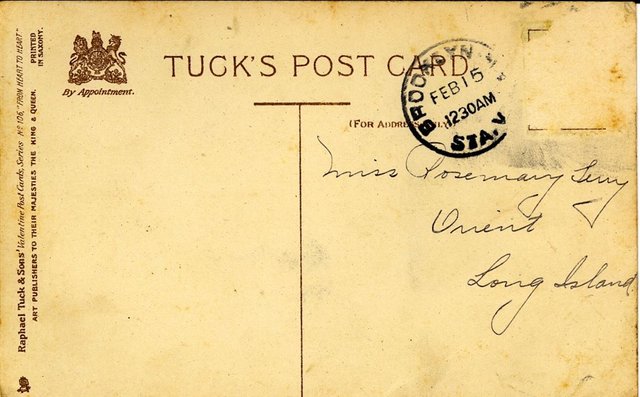 TUCK'S POST CARD
By Appointment.
(FOR ADDRESS ONLY)
BROOKLYN, N.Y.
FEB 15
1230AM
STA. V
Miss Rosemary Terry
Orient
Long Island
Raphael Tuck & Sons' Valentine Post Cards, Series No 106, "FROM HEART TO HEART"
ART PUBLISHERS TO THEIR MAJESTIES THE KING & QUEEN.
PRINTED
IN SAXONY.